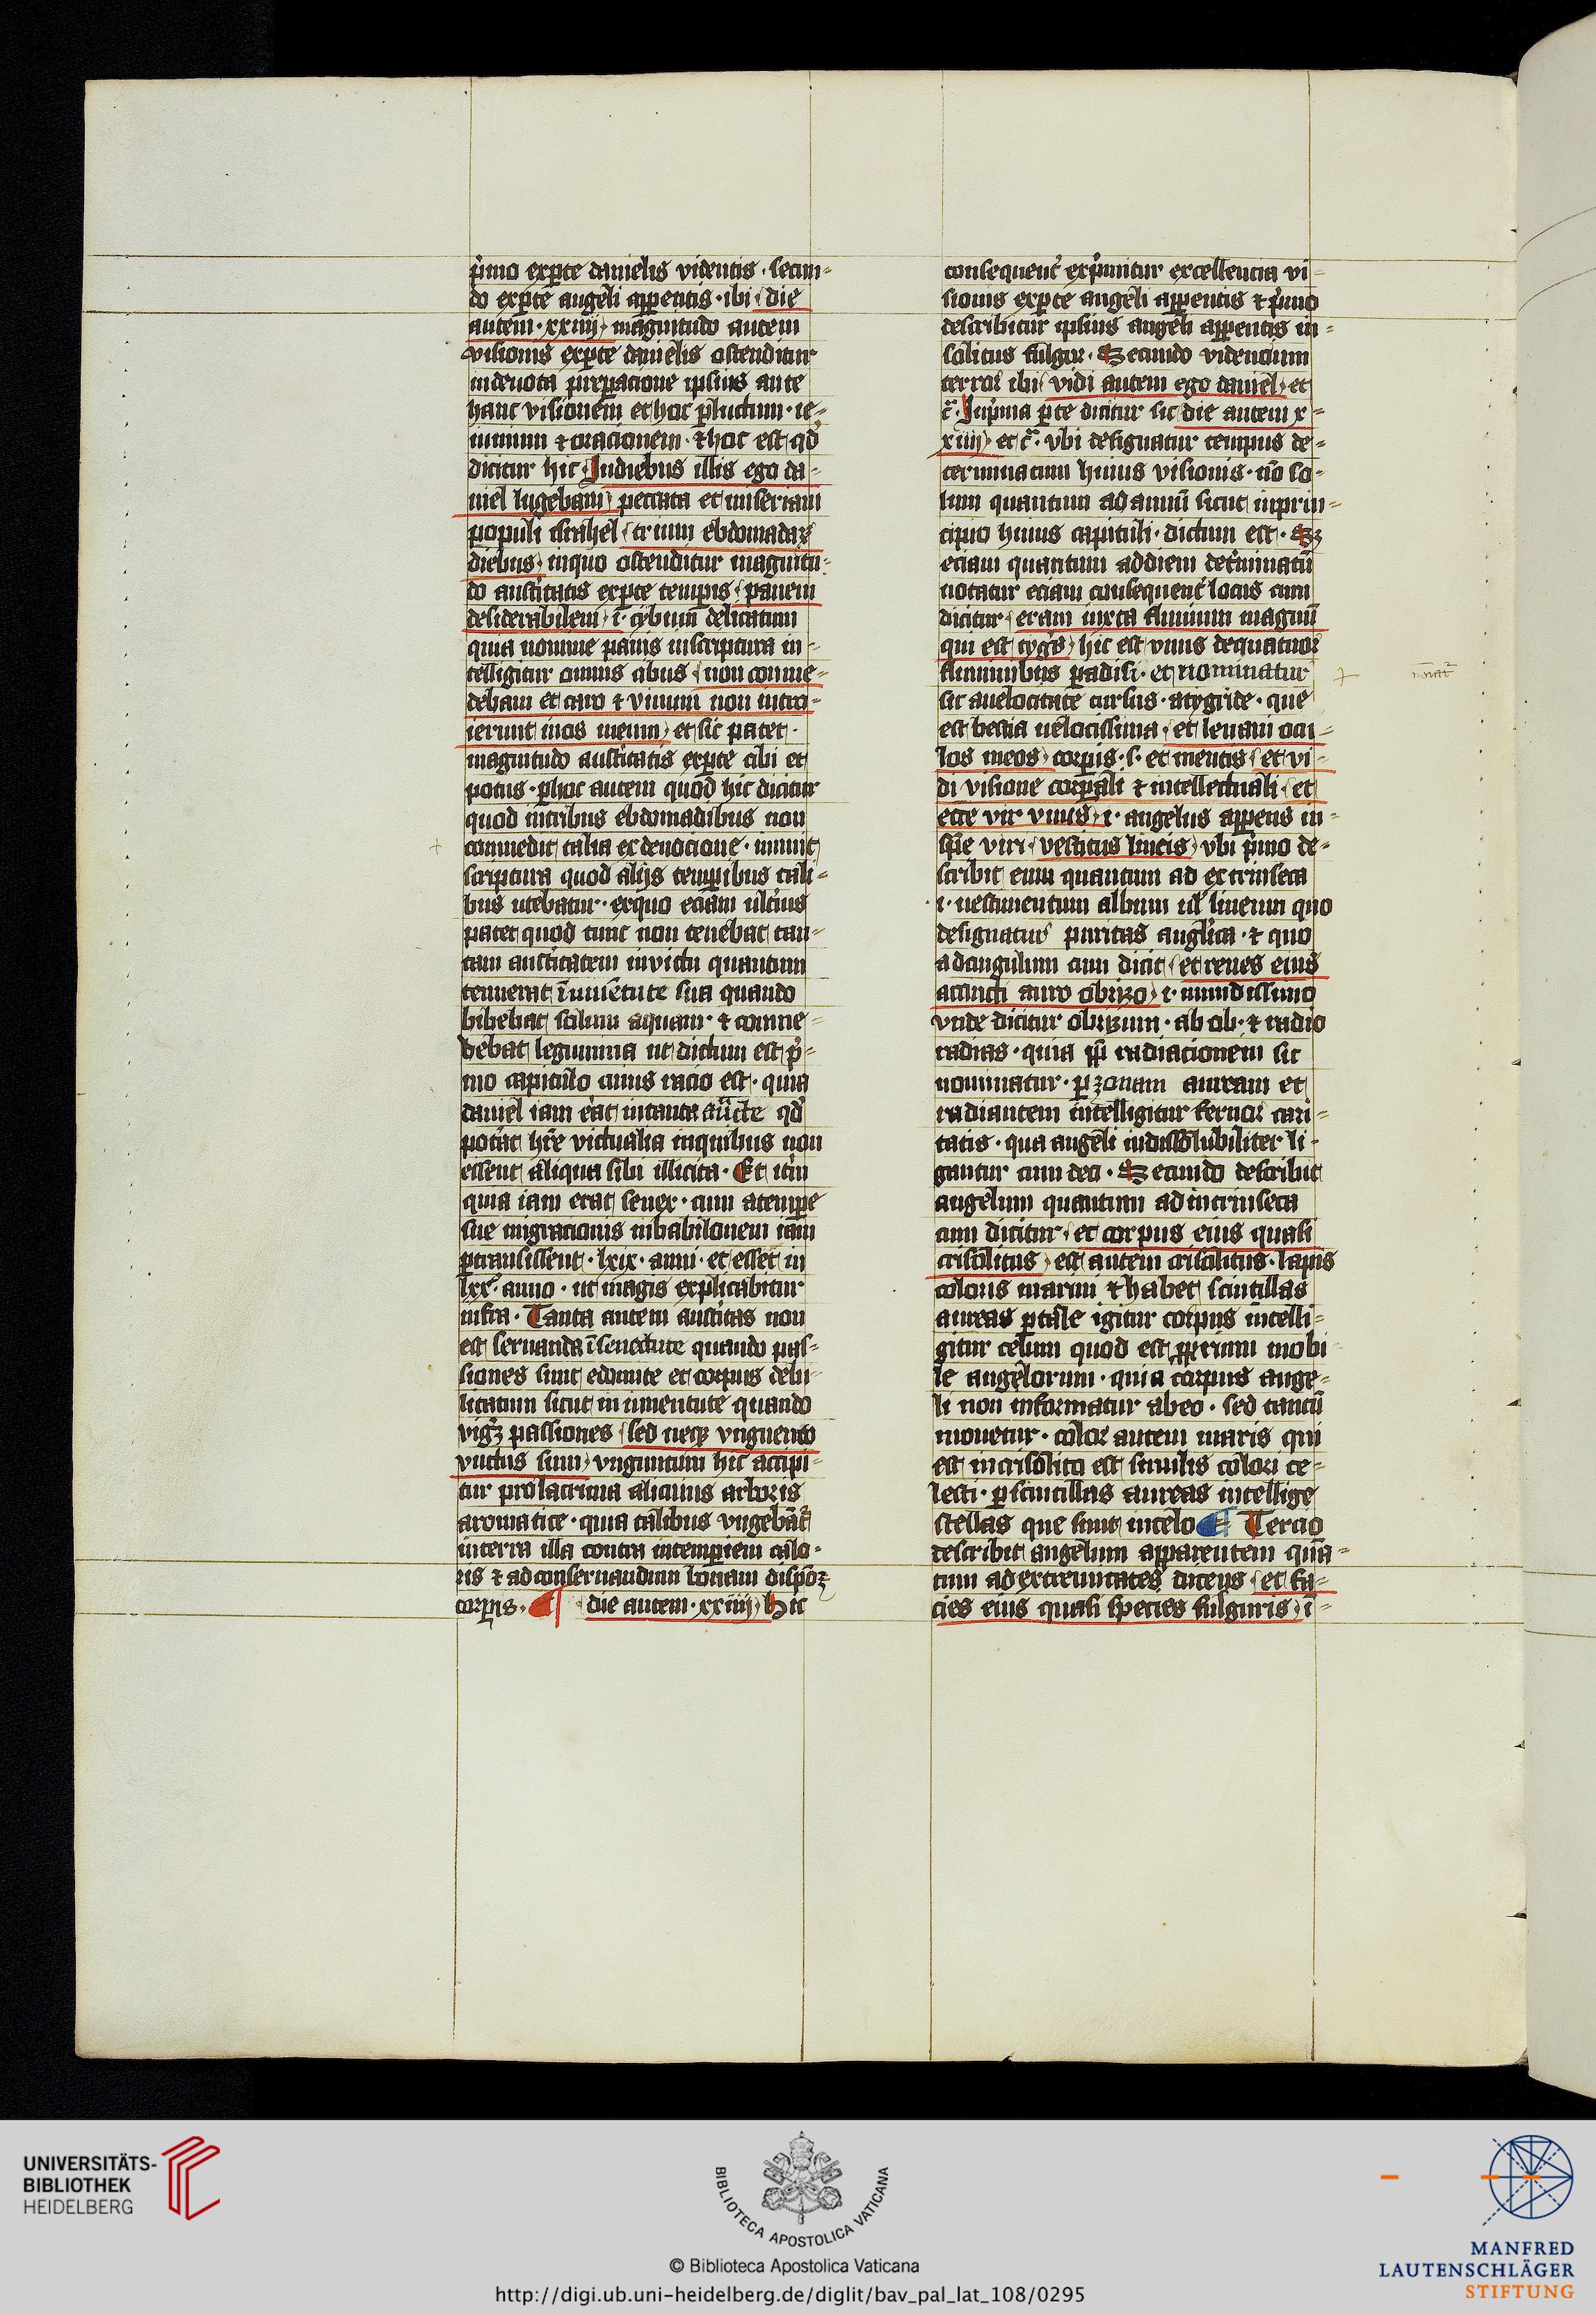 p̾mo exꝑte danielis videntis · secun⸗
do exꝑte angeli aꝑpentis · ibi · die
autem · xxiiij · magnitudo autem
visionis exꝑte danielis ostenditur
indeuota preꝑacione ipsius ante
hanc visionem et hoc ꝑ luctum · ie⸗
iunium ⁊ oracionem · ⁊ hoc est qd̾
dicitur hic · Jn diebus illis ego da⸗
niel lugebam · peccata et miseriam
populi israhel · trium ebdomadaꝝ
diebus · inquo ostenditur magnitu⸗
do aust̾itatis exꝑte temꝑis · panem
desiderabilem · i · cybum delicatum
quia nomine panis inscriptura in⸗
telligitur omnis cibus · non comme⸗
debam et caro ⁊ vinum non intro⸗
ierunt inos meum · et sic patet ·
magnitudo aust̾itatis exꝑte cibi et
potus · ꝑ hoc autem quod hic dicitur
quod intribus ebdomadibus non
commedit talia ex deuocione · innuit
scriptura quod alijs temꝑibus tali⸗
bus utebatur · exquo eciam ulc̾ius
patet quod tunc non tenebat tan⸗
tam aust̾itatem invictu quantum
tenuerat ī iuuētute sua quando
bibebat solum aquam · ⁊ comme⸗
debat legumina ut dictum est p̾⸗
mo capitulo cuius racio est · quia
daniel iam erat intanta auc̄te qd̾
pot̾at hr̄e victualia inquibus non
essent aliqua sibi illicita · Et it̾m
quia iam erat senex · cum atemꝑe
sue migracionis inbabilonem iam
ꝑtransissent · lxix · anni · et esset in
lxx° · anno · ut magis explicabitur
infra · Tanta autem aust̾itas non
est seruanda ī senectute quando pas⸗
siones sunt edomite et corpus debi⸗
litatum sicut in iuuentute quando
vigꝫ passiones · sed neqꝫ vnguento
vnctus sum · vnguntum hic accipi⸗
tur pro lacrima alicuius arboris
aromatice · quia talibus vngebāt̾
interra illa contra intemꝑiem calo⸗
ris ⁊ ad conseruandum bonam dispōꝫ
corꝑis · ¶ die autem · xxiiij · hic
consequent̾ exp̾mitur excellencia vi⸗
sionis exꝑte angeli aꝑpentis ⁊ p̾mo
describitur ipsius angeli aꝑpentis in⸗
solitus fulgor · Secundo videncium
terror ibi · vidi autem ego daniel · et
c̃ · Jnp̾ma ꝑte dicitur sic die autem x⸗
xiiij · et c̃ · vbi designatur tempus de⸗
terminatum huius visionis · nō so⸗
lum quantum ad annū sicut inprin⸗
cipio huius capituli · dictum est · Sꝫ
eciam quantum addiem det̾minatū
notatur eciam consequent̾ locus cum
dicitur · eram iuxta fluuium magnū
qui est tyg̾s · hic est vnus dequatuor
fluminibus ꝑadisi · et nominatur
sic auelocitate cursus · atygride · que
est bestia uelocissima · et leuaui ocu⸗
los meos · corꝑis · s · et mentis · et vi⸗
di visione corꝑali ⁊ intellectuali · et
ecce vir vnus · i · angelus aꝑpens in⸗
sꝑe viri · vestitus lineis · vbi p̾mo de⸗
scribit eum quantum ad extrinseca
· i · uestimentum album ul̾ lineum quo
designatur puritas anglica · ⁊ quo
adcingulum cum dicit · et renes eius
accincti auro obrizo · i · mundissimo
vnde dicitur obrizum · ab ob · ⁊ radio
radias · quia ꝓp̄ radiacionem sic
nominatur · ꝑ zonam auream et
radiantem intelligitur feruor cari⸗
tatis · qua angeli indissolubiliter li⸗
gantur cum deo · Secundo describit
angelum quantum ad intrinseca
cum dicitur · et corpus eius quasi
crisolitus · est autem crisolitus · lapis
coloris marini ⁊ habet scintillas
aureas ꝑ tale igitur corpus intelli⸗
gitur celum quod est ꝓprium mobi⸗
le angelorum · quia corpus ange⸗
li non informatur abeo · sed tantū
mouetur · color autem maris qui
est incrisolito est similis colori ce⸗
lesti · ꝑ scintillas aureas intellige
stellas que sunt incelo ¶ Tercio
describit angelum apparentem quā⸗
tum ad extremitates dicens · et fa⸗
cies eius quasi species fulguris · i⸗
UNIVERSITÄTS-
BIBLIOTHEK
HEIDELBERG
BIBLIOTECA APOSTOLICA VATICANA
© Biblioteca Apostolica Vaticana
http://digi.ub.uni-heidelberg.de/diglit/bav_pal_lat_108/0295
MANFRED
LAUTENSCHLÄGER
STIFTUNG